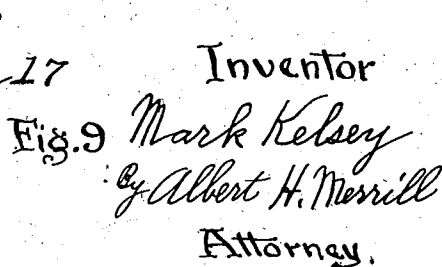 17
Inventor
Fig.9
Mark Kelsey
By Albert H. Merrill
Attorney.